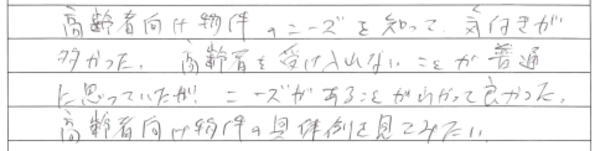 高齢者向け物件のニーズを知って、気付きが
多かった。高齢者を受け入れないことが普通
に思っていたが、ニーズがあることがわかって良かった。
高齢者向け物件の具体例を見てみたい